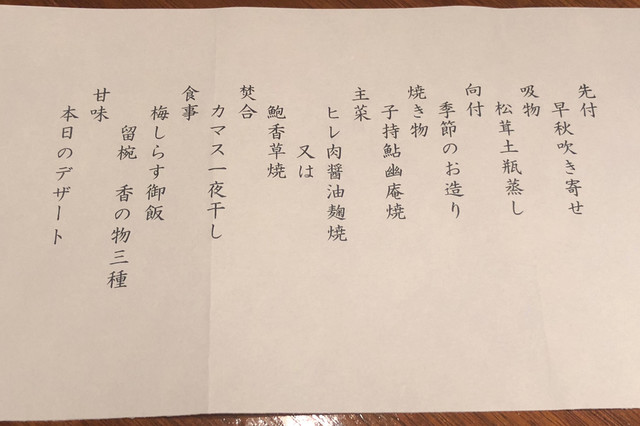 先付
早秋吹き寄せ
吸物
松茸土瓶蒸し
向付
季節のお造り
焼き物
子持鮎幽庵焼
主菜
ヒレ肉醤油麹焼
又は
鮑香草焼
焚合
カマス一夜干し
食事
梅しらす御飯
留椀 香の物三種
甘味
本日のデザート